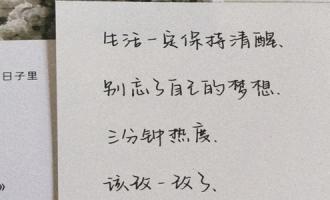 生活一定保持清醒、
别忘了自己的梦想.
三分钟热度.
该改一改了、
日子里
》